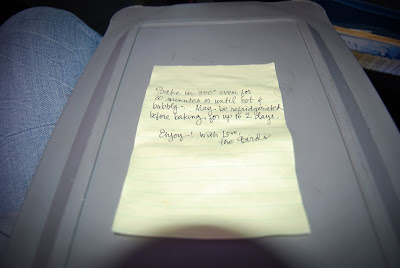 Bake in 350° oven for
minutes or until hot &
bubbly. May be refridgerated
before baking, for up to 2 days.
Enjoy! With Love,
the Birds